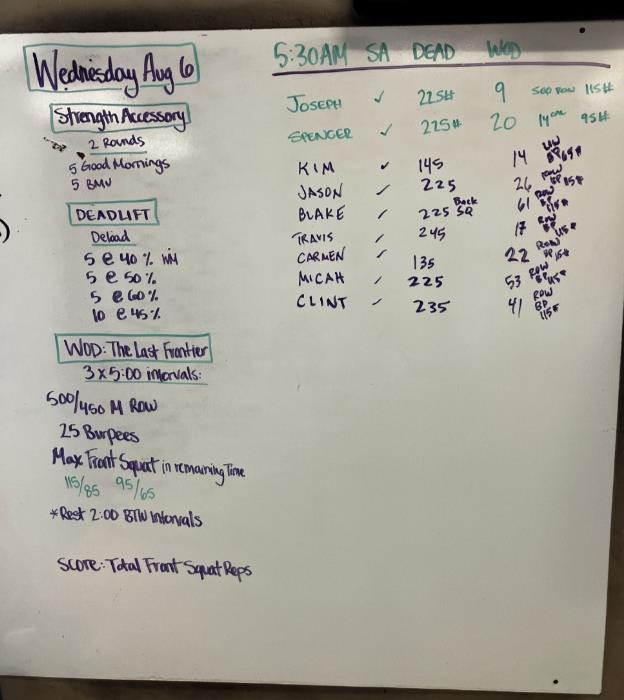 Wednesday Aug 6
Strength Accessory
2 Rounds
5 Good Mornings
5 BMU
DEADLIFT
Deload
5 @ 40%
5 @ 50%
5 @ 60%
10 @ 45%
WOD: The Last Frontier
3x5:00 intervals:
500/450 M Row
25 Burpees
Max Front Squat in remaining Time
115/85 95/65
*Rest 2:00 BTW Intervals
SCORE: Total Front Squat Reps
5:30AM SA DEAD WOD
JOSEPH ✓ 225# 9 500 ROW 115#
SPENCER ✓ 225# 20 95#
KIM ✓ 145 14 65#
JASON ✓ 225 26 ROW BP 115#
BLAKE ✓ 225 Back SQ 61 ROW BP 115#
TRAVIS ✓ 245 17 ROW BP 115#
CARMEN ✓ 135 22 ROW BP
MICAH ✓ 225 53 ROW BP 115#
CLINT ✓ 235 41 ROW BP 115#